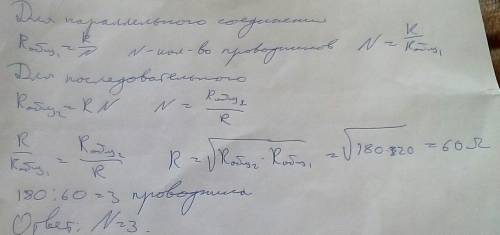 Для параллельного соединения
Rобщ₁ = R/N N - кол-во проводников N = R/Rобщ₁
Для последовательного
Rобщ₂ = RN N = Rобщ₂/R
R/Rобщ₁ = Rобщ₂/R R = √(Rобщ₂ · Rобщ₁) = √(180·20) = 60 Ω
180 : 60 = 3 проводника
Ответ: N = 3.